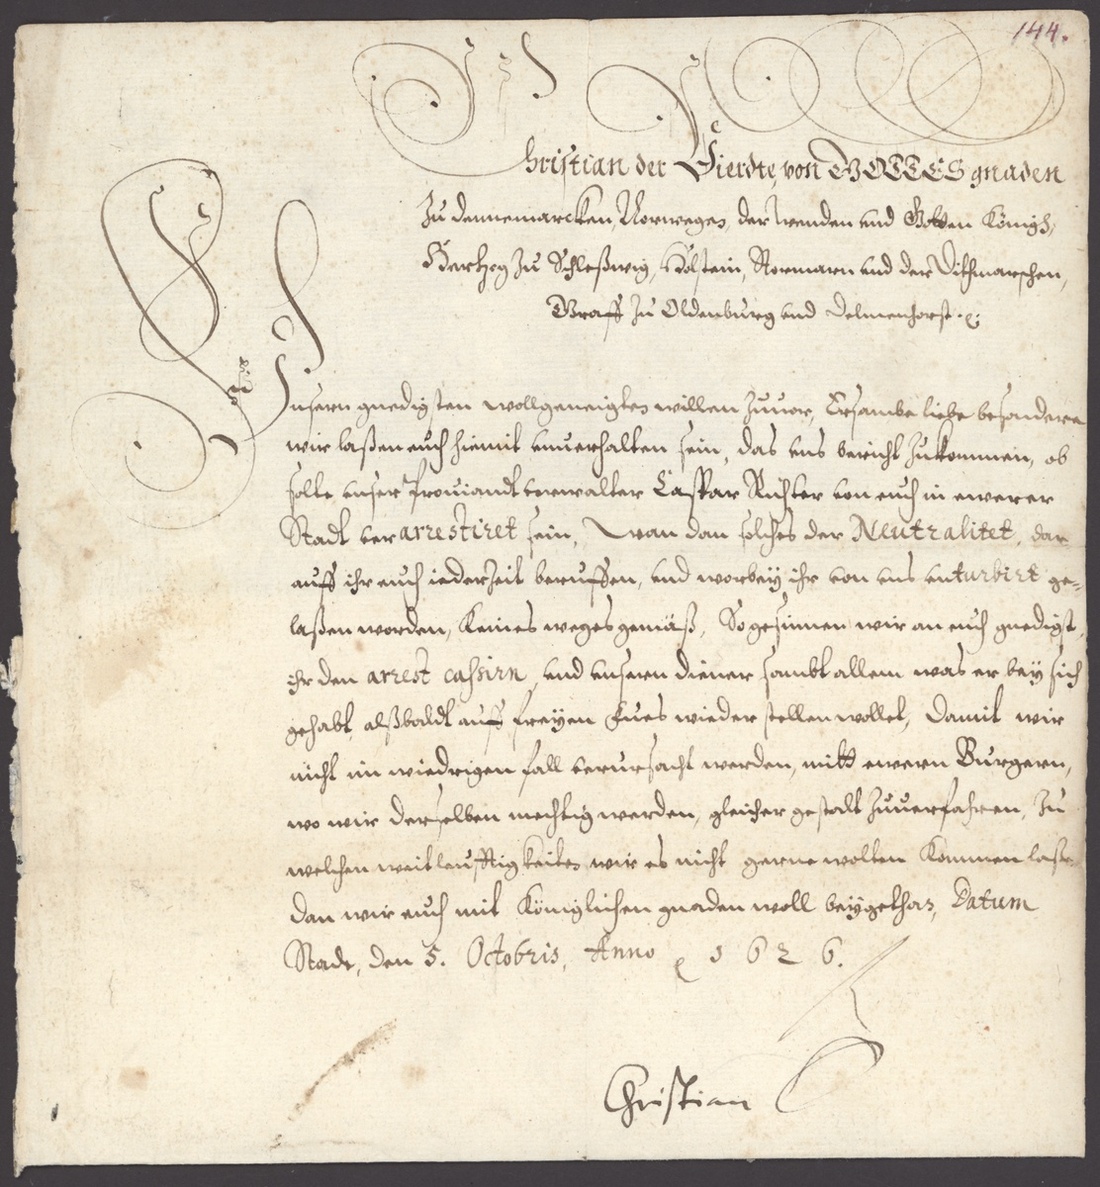 144.
Christian der Vierdte, von GOTTES gnaden
Zu dennemarcken, Norwegen, der Wenden und Gotten Königk,
Hertzog Zu Schleßwig, Holstein, Stormarn und der Dithmarschen,
Graff Zu Oldenburg und Delmenhorst
Unsern gnedigsten wollgeneigten willen Zuuor, Ersambe liebe besondere
wir laßen euch hiemit unuerhalten sein, das uns bericht Zukommen, ob
solte unser Prouiandtverwalter Caspar Richter von euch in ewerer
Stadt verarrestiret sein, Wan dan solches der Neutralitet, dar
auff ihr euch iederZeit beruffen, und worbey ihr von uns unturbirt ge-
laßen worden, Keines weges gemäß, So gesinnen wir an euch gnedigst,
ihr den arrest cassirn, und unsern diener sambt allem was er bey sich
gehabt, alßbaldt auff freyen Fues wieder stellen wollet, Damit wir
nicht im wiedrigen fall verursacht werden, mitt ewern Burgern,
wo wir derselben mechtig werden, gleicher gestalt Zuuerfahren, Zu
welchen weitleufftigkeiten wir es nicht gerne wolten Kommen laßen
dan wir euch mit Königlichen gnaden woll beygethan, Datum
Stade, den 5. Octobris, Anno 1626.
Christian